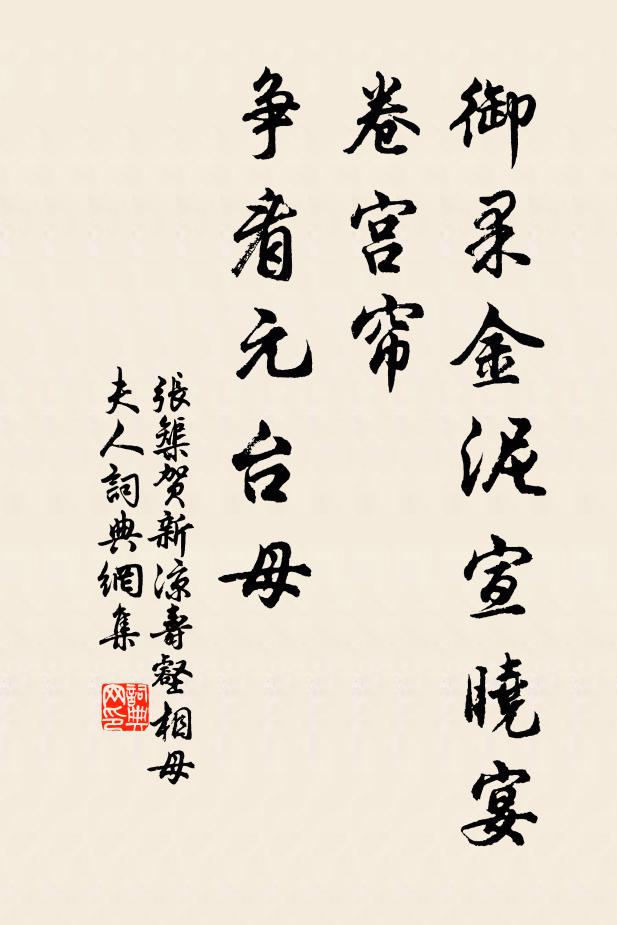 御果金泥宣曉宴
卷宫帘
争看元台母
張榘贺新涼壽壑相母
夫人詞典網集
詞典
网印